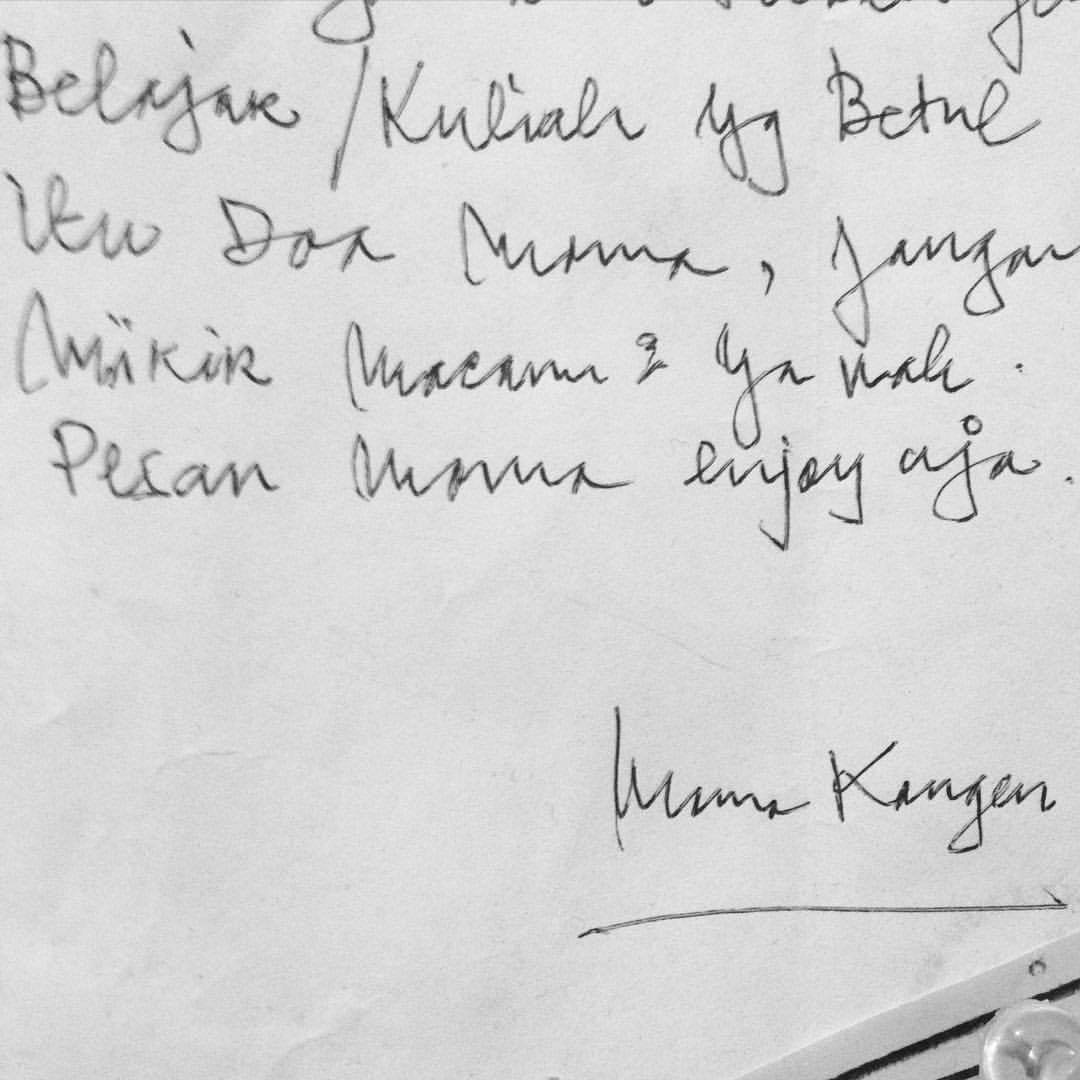 Belajar / Kuliah yg Betul
itu Doa Mama, Jangan
Mikir Macam2 Ya nak.
Pesan Mama enjoy aja.
Mama Kangen